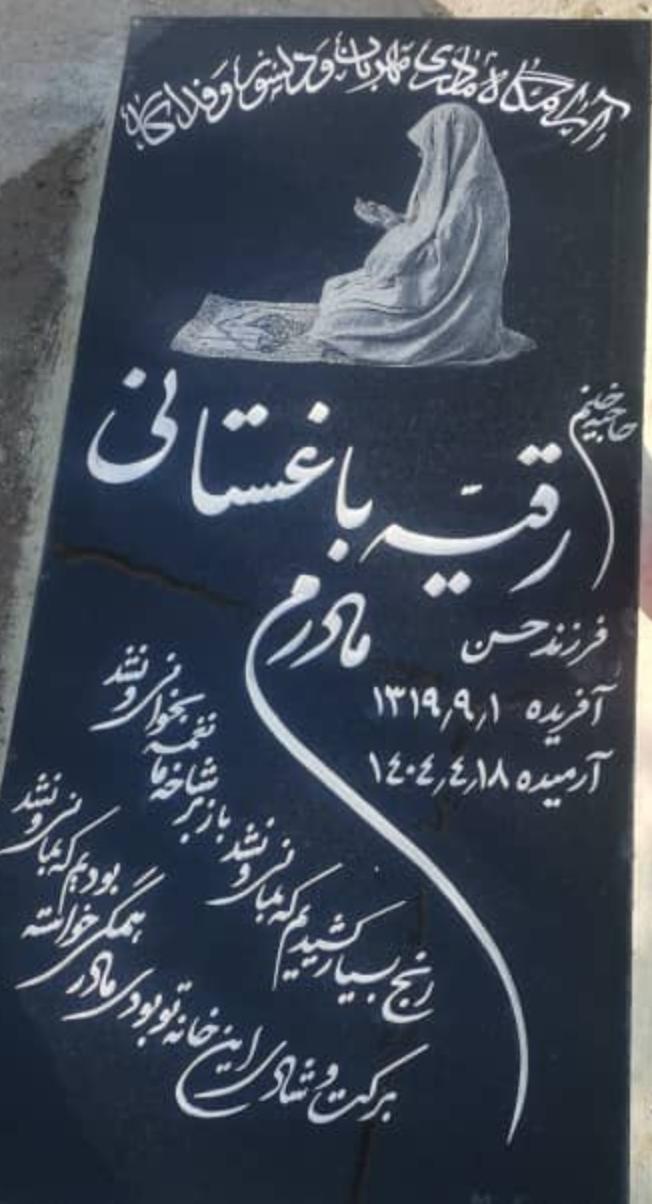 آرامگاه مادری مهربان و دلسوز و فداکار
حاجیه خانم
رقیه باغستانی
مادرم
فرزند حسن
آفریده ۱۳۱۹٫۹٫۱
آرمیده ۱۴۰۴٫۴٫۱۸
رنج بسیار کشیدیم که بمانی و نشد
باز بر شاخه ما نغمه بخوانی و نشد
برکت و شادی این خانه تو بودی مادر
همگی خواسته بودیم که بمانی و نشد